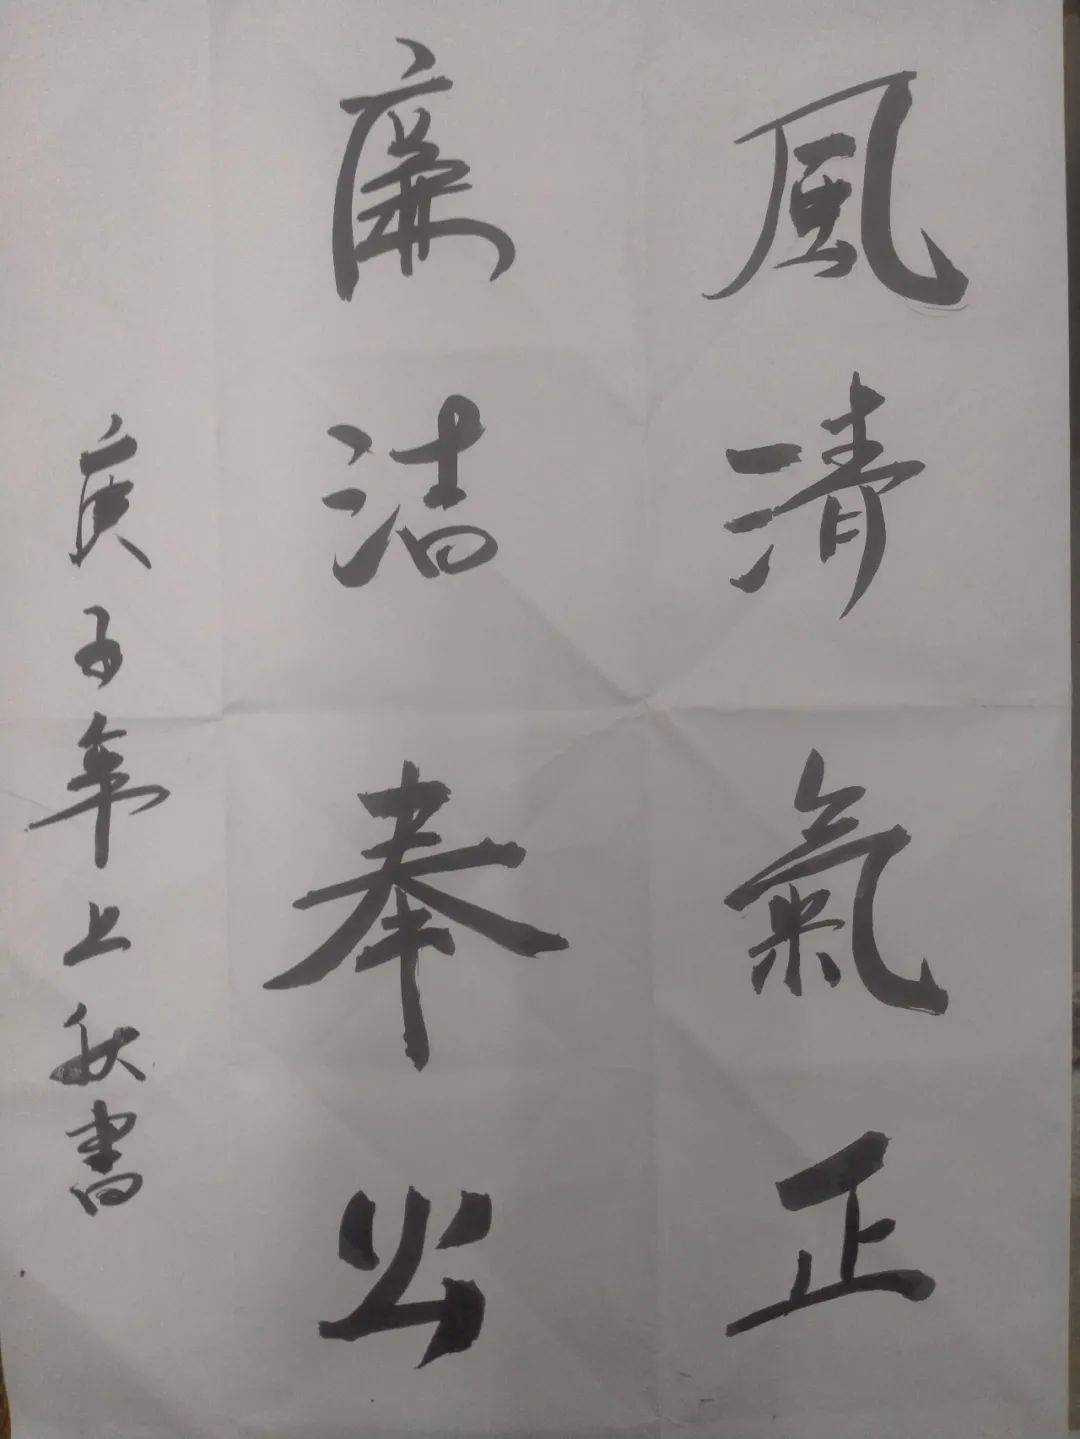 風清氣正
廉洁奉公
庚子年上秋書